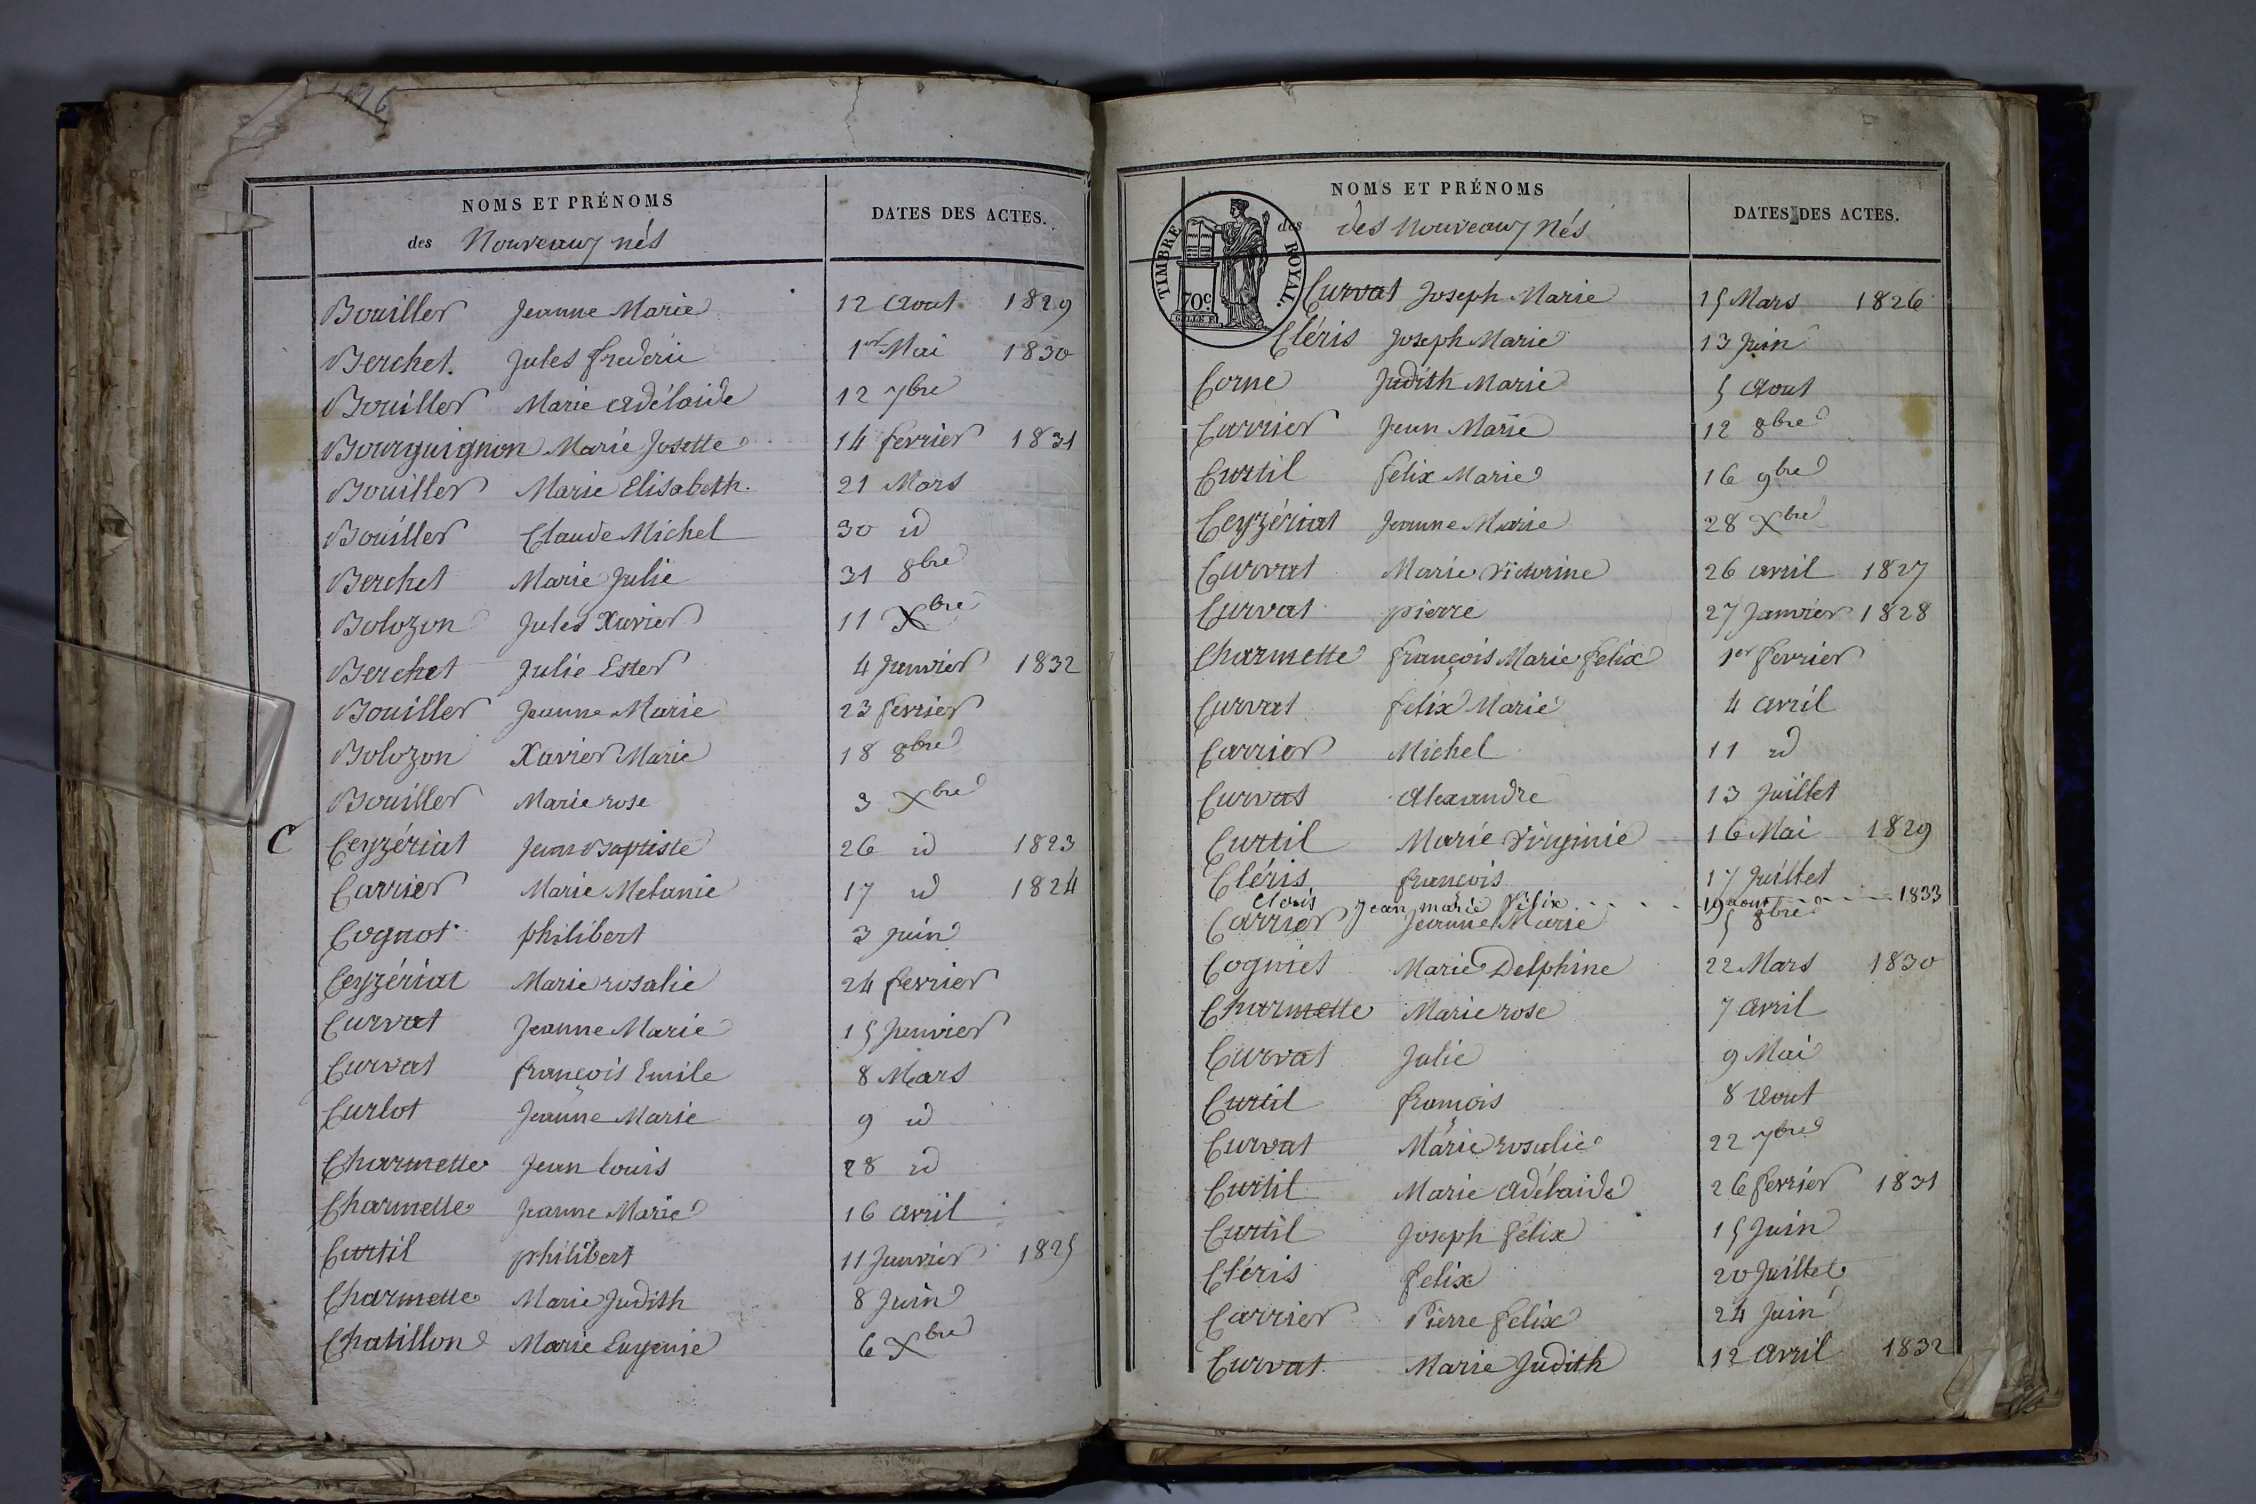 NOMS ET PRÉNOMS
DATES DES ACTES.
des Nouveaux nés
Bouiller Jeanne Marie 12 Aout 1829
Berchet Jules frederic 1er Mai 1830
Bouiller Marie Adélaide 12 7bre
Bourguignon Marie Josette 14 fevrier 1831
Bouiller Marie Elisabeth. 21 Mars
Bouiller Claude Michel 30 id
Berchet Marie Julie 31 8bre
Bolozon Jules Xavier 11 Xbre
Berchet Julie Ester 4 Janvier 1832
Bouiller Jeanne Marie 23 fevrier
Bolozon Xavier Marie 18 8bre
Bouiller Marie rose 3 Xbre
C Ceyzériat Jean Baptiste 26 id 1823
Carrier Marie Melanie 17 id 1824
Cognot philibert 3 Juin
Ceyzériat Marie rosalie 24 fevrier
Curvat Jeanne Marie 15 Janvier
Curvat françois Emile 8 Mars
Curlot Jeanne Marie 9 id
Charmette Jean louis 28 id
Charmette Jeanne Marie 16 avril
Curtil philibert 11 Janvier 1825
Charmette Marie Judith 8 Juin
Chatillon Marie Eugenie 6 Xbre
NOMS ET PRÉNOMS
DATES DES ACTES.
des des Nouveaux Nés
TIMBRE ROYAL.
70c.
Curvat Joseph Marie 15 Mars 1826
Cléris Joseph Marie 13 Juin
Corne Judith Marie 5 Aout
Carrier Jean Marie 12 8bre
Curtil felix Marie 16 9bre
Ceyzériat Jeanne Marie 28 Xbre
Curvat Marie victorine 26 avril 1827
Curvat pierre 27 Janvier 1828
Charmette françois Marie felix 1er fevrier
Curvat felix Marie 4 avril
Carrier Michel 11 id
Curvat Alexandre 13 Juillet
Curtil Marie Virginie 16 Mai 1829
Cléris françois 17 Juillet
Cleris Jean marie Félix 19 aout 1833
Carrier Jeanne Marie 5 8bre
Cogniet Marie Delphine 22 Mars 1830
Charmette Marie rose 7 avril
Curvat Julie 9 Mai
Curtil françois 8 Aout
Curvat Marie rosalie 22 7bre
Curtil Marie Adélaide 26 fevrier 1831
Curtil Joseph félix 15 Juin
Cléris felix 20 Juillet
Carrier Pierre felix 24 Juin
Curvat Marie Judith 12 avril 1832